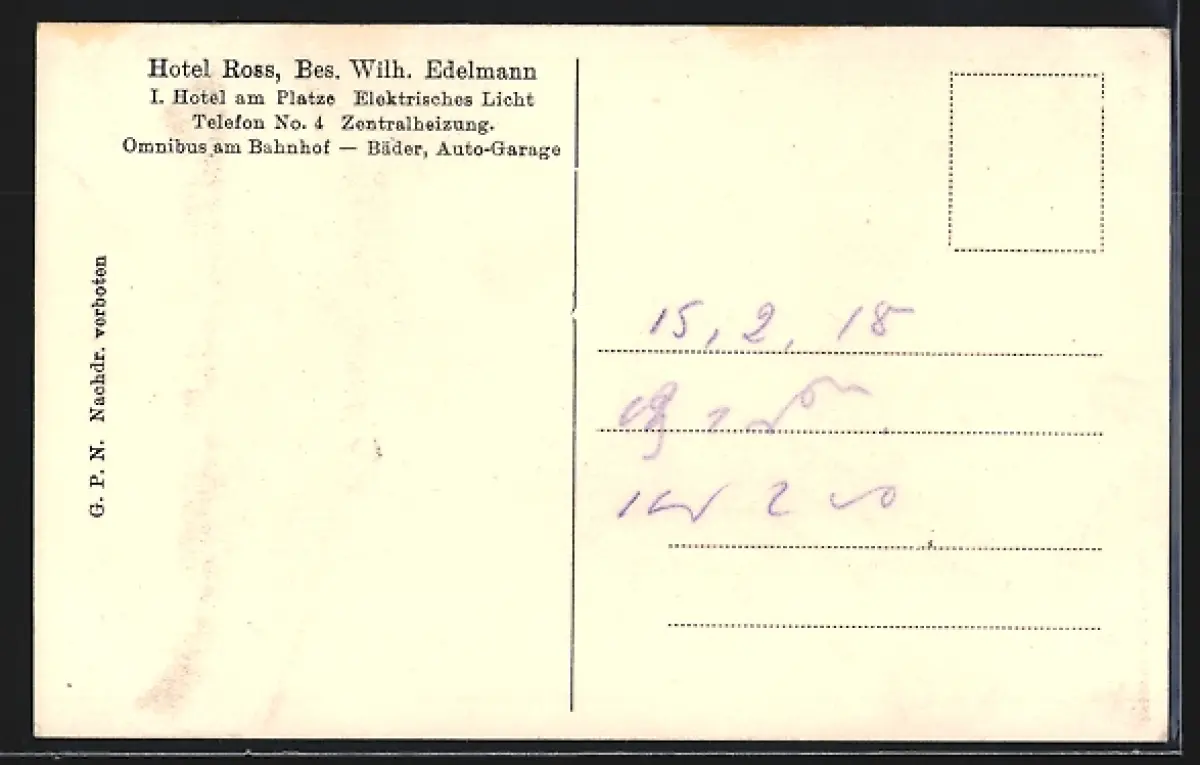 Hotel Ross, Bes. Wilh. Edelmann
I. Hotel am Platze Elektrisches Licht
Telefon No. 4 Zentralheizung.
Omnibus am Bahnhof — Bäder, Auto-Garage
G. P. N. Nachdr. verboten
15, 2, 18